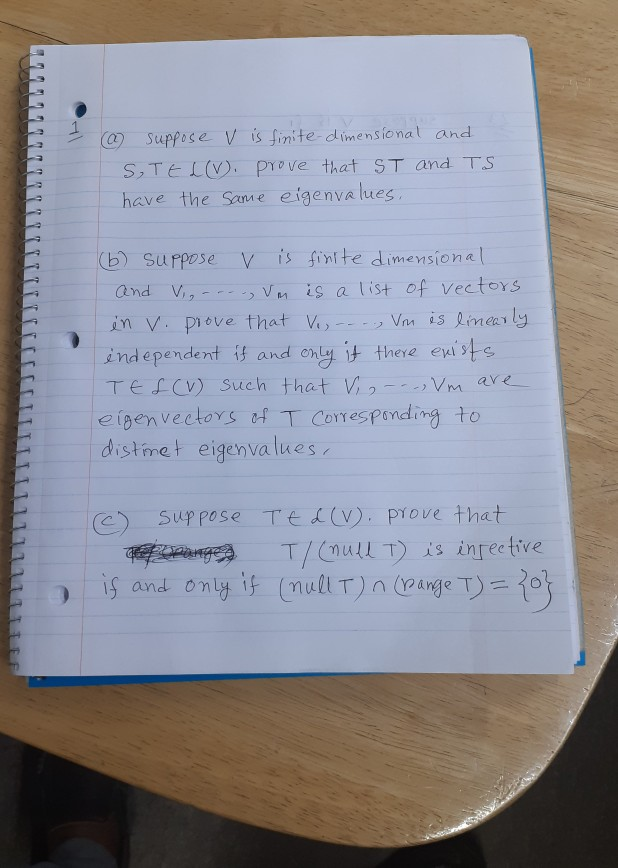 1 (a) suppose V is finite-dimensional and
S, T ∈ L(V). prove that ST and TS
have the same eigenvalues.
(b) suppose V is finite dimensional
and V₁, ----, Vm is a list of vectors
in V. prove that V₁, ---, Vm is linearly
independent if and only if there exists
T ∈ L(V) such that V₁, ---, Vm are
eigenvectors of T corresponding to
distinct eigenvalues.
(c) suppose T ∈ L(V). prove that
T/(null T) is injective
if and only if (null T) ∩ (range T) = {0}